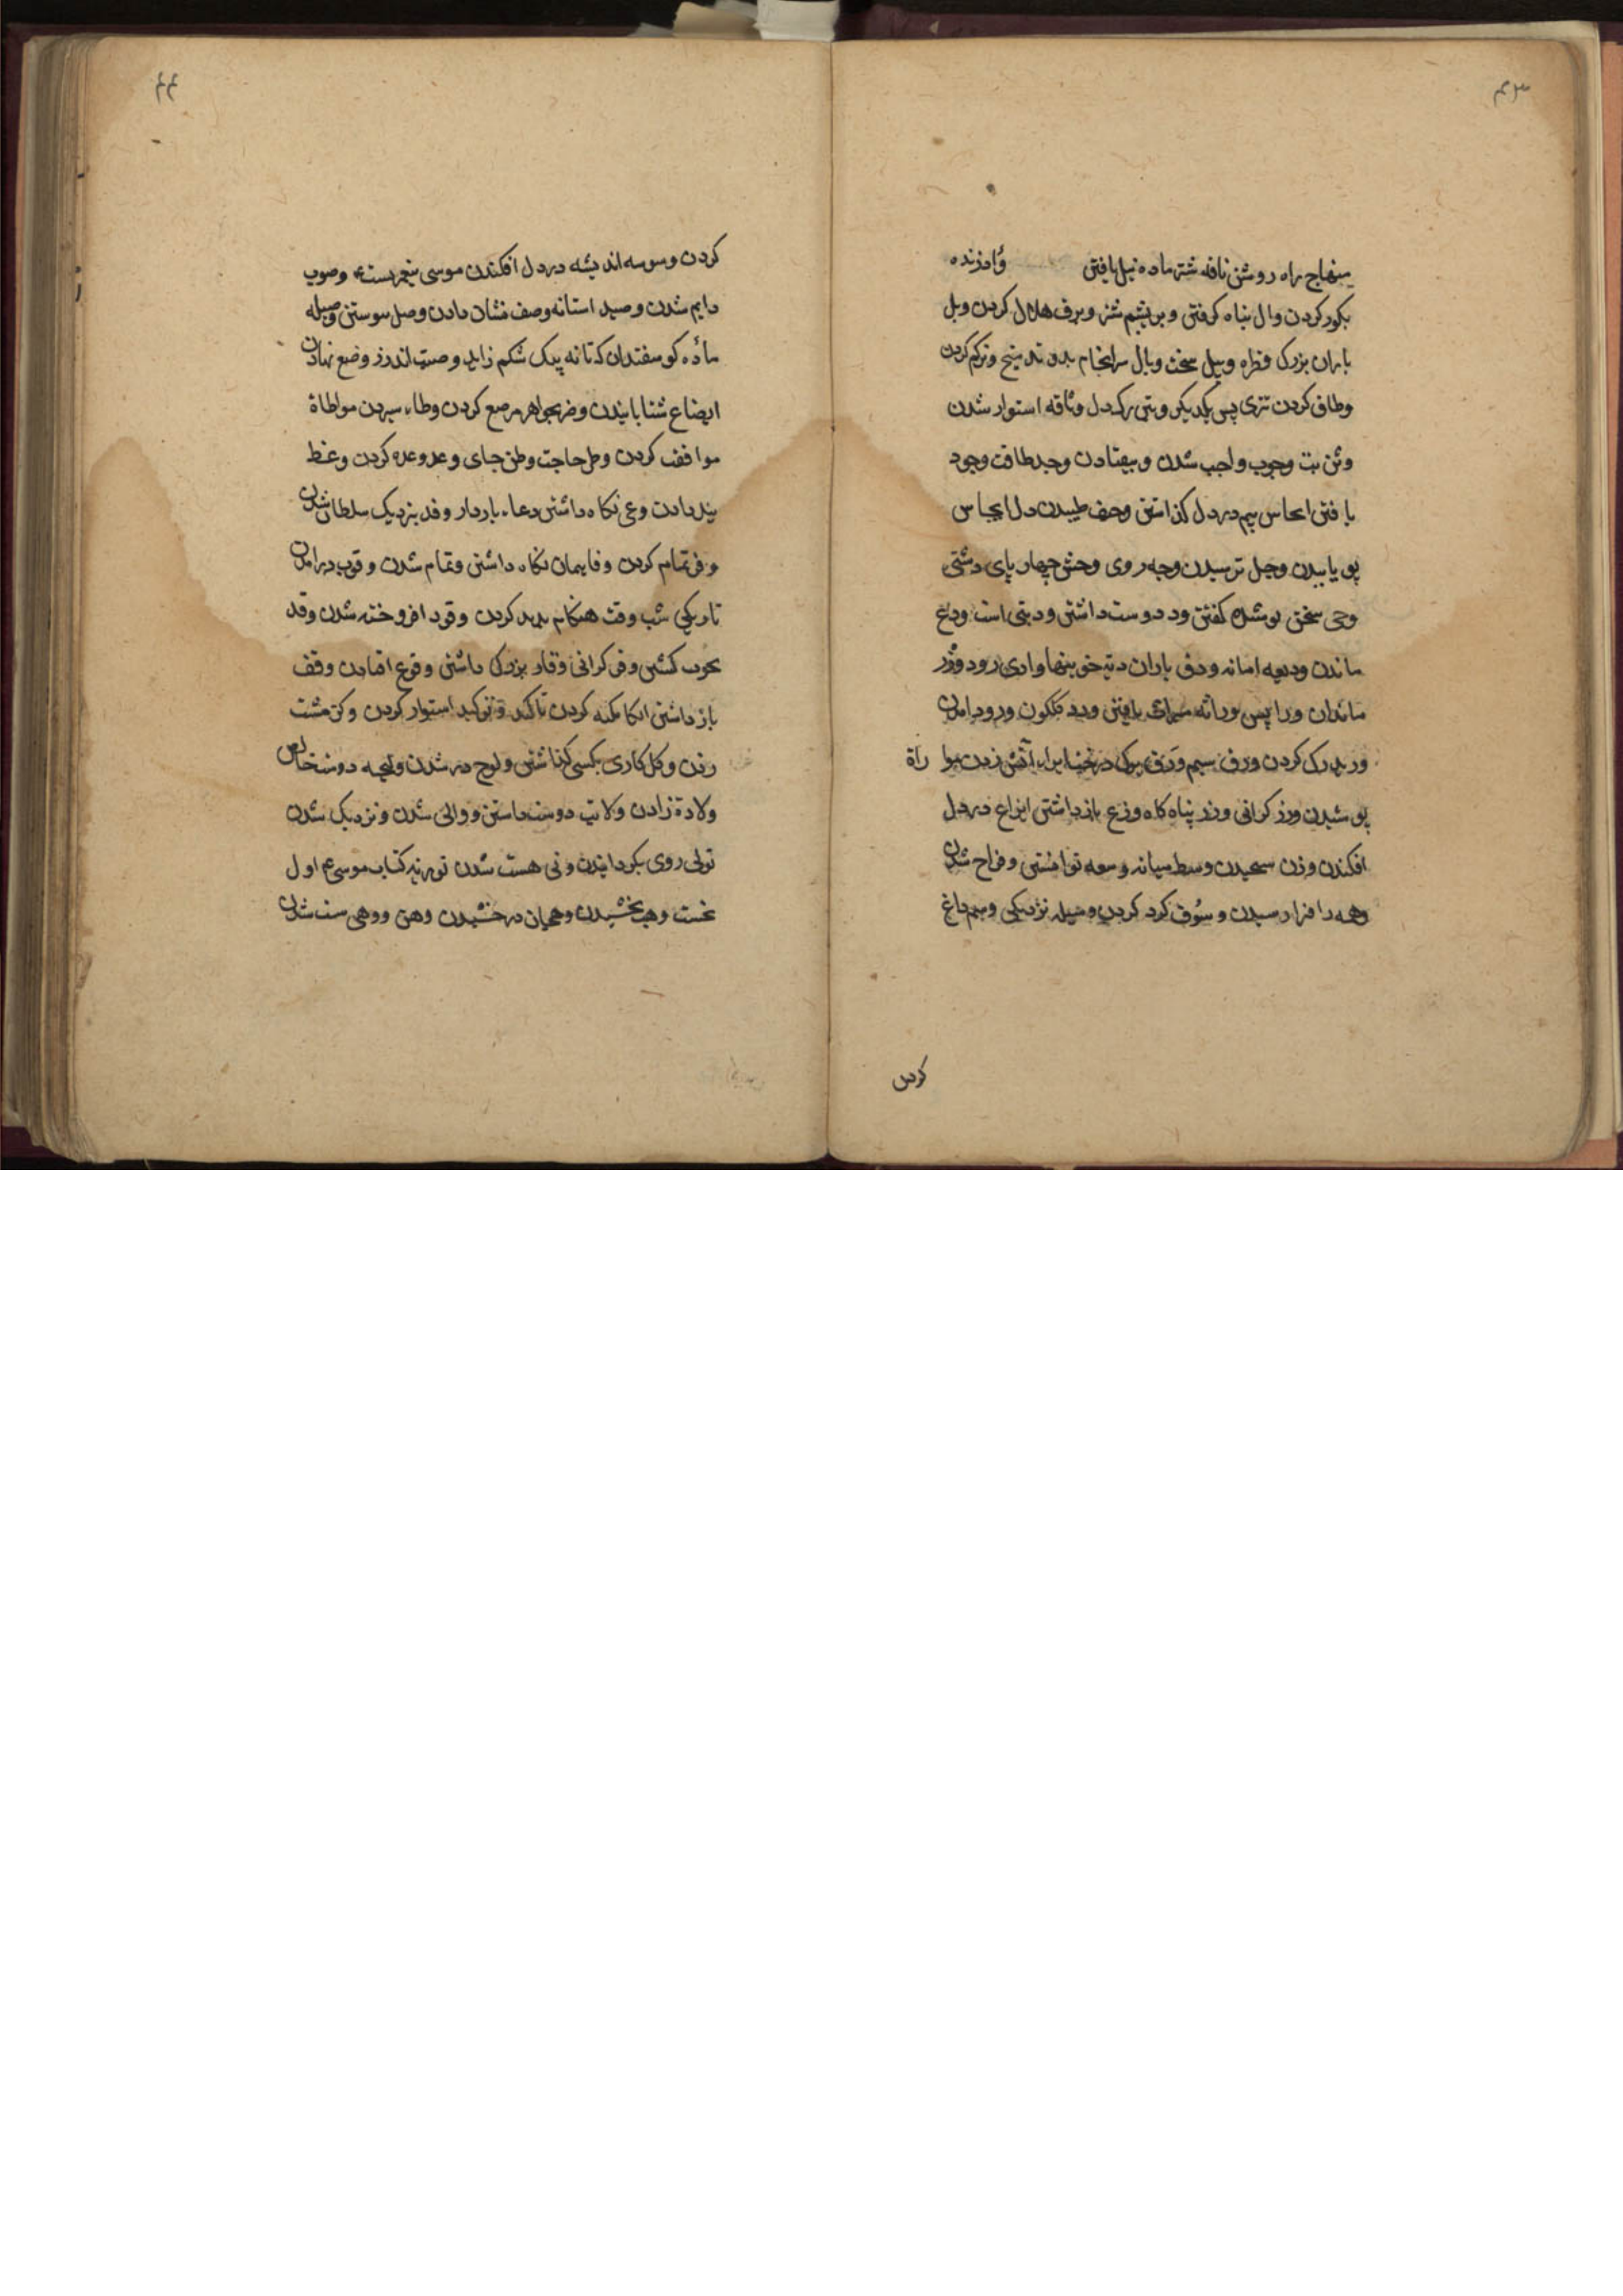 ۴۳
منهاج راه روشن ناقه شتر ماده نیل یافتن وأد زنده
بکور کردن وال پناه کرفتن وبر پشم شتر وبرق هلاک کردن وبل
باران بزرک قطره وبیل سخت وبال سرانجام بد وتد میخ وتر کم کردن
وطاق کردن تتری پس یکدیکر وتین رک دل وثاقه استوار شدن
وثن بت وجوب واجب شدن وبیفتادن وجد طاقت وجود
یافتن ایجاس بیم در دل کذاشتن وجف طپیدن دل ایجاس
پویاییدن وجل ترسیدن وجه روی وحش چهار پای دشتی
وحی سخن پوشیده کفتن ود دوست داشتن ود بتی است ودع
ماندن ودیعه امانه ودق باران دیة خون بها وادی رود وذر
ماندن ورا پس وراثه میراث یافتن ورد کلکون ورود درامدن
ورید رک کردن ورق سیم ورق برک درخت ایراء آتش زدن موا راة
پوشیدن وزر کرانی وزر پناه کاه وزع بازداشتن ایزاع در دل
افکندن وزن سنجیدن وسط میانه وسعه توانستن وفراخ شدن
وسه را فراز رسیدن وسوق کرد کردن وسیله نزدیکی وسم داغ
کردن
۴۴
کردن وسوسه اندیشه در دل افکندن موسی پیغمبر یست ع وصوب
دایم شدن وصید استانه وصف نشان دادن وصل پیوستن وصیله
مأده کوسفندان که تا نه بیک شکم زاید وصیت اندرز وضع نهادن
ایضاع شتابانیدن وضن بجواهر مرصع کردن وطاء سپردن مواطاة
موافقت کردن وطر حاجت وطن جای وعد وعده کردن وعظ
پند دادن وعی نکاه داشتن دعاء باردار وفد بنزدیک سلطان شدن
وفر تمام کردن وفا پیمان نکاه داشتن وتمام شدن وقوب درامدن
تاریکی شب وقت هنکام پدید کردن وقود افروخته شدن وقد
بچوب کشتن وقر کرانی وقار بزرک داشتن وقوع افتادن وقف
بازداشتن اتکا تکیه کردن تاکید وتوکید استوار کردن وکز مشت
زدن وکل کاری بکسی کذاشتن ولوج در شدن ولیجه دوست خالص
ولادة زادن ولایت دوست داشتن ووالی شدن ونزدیک شدن
تولی روی بکردانیدن ونی هست شدن توریة کتاب موسی ع اول
نخست وهب بخشیدن وهجان درخشیدن وهن ووهی سست شدن